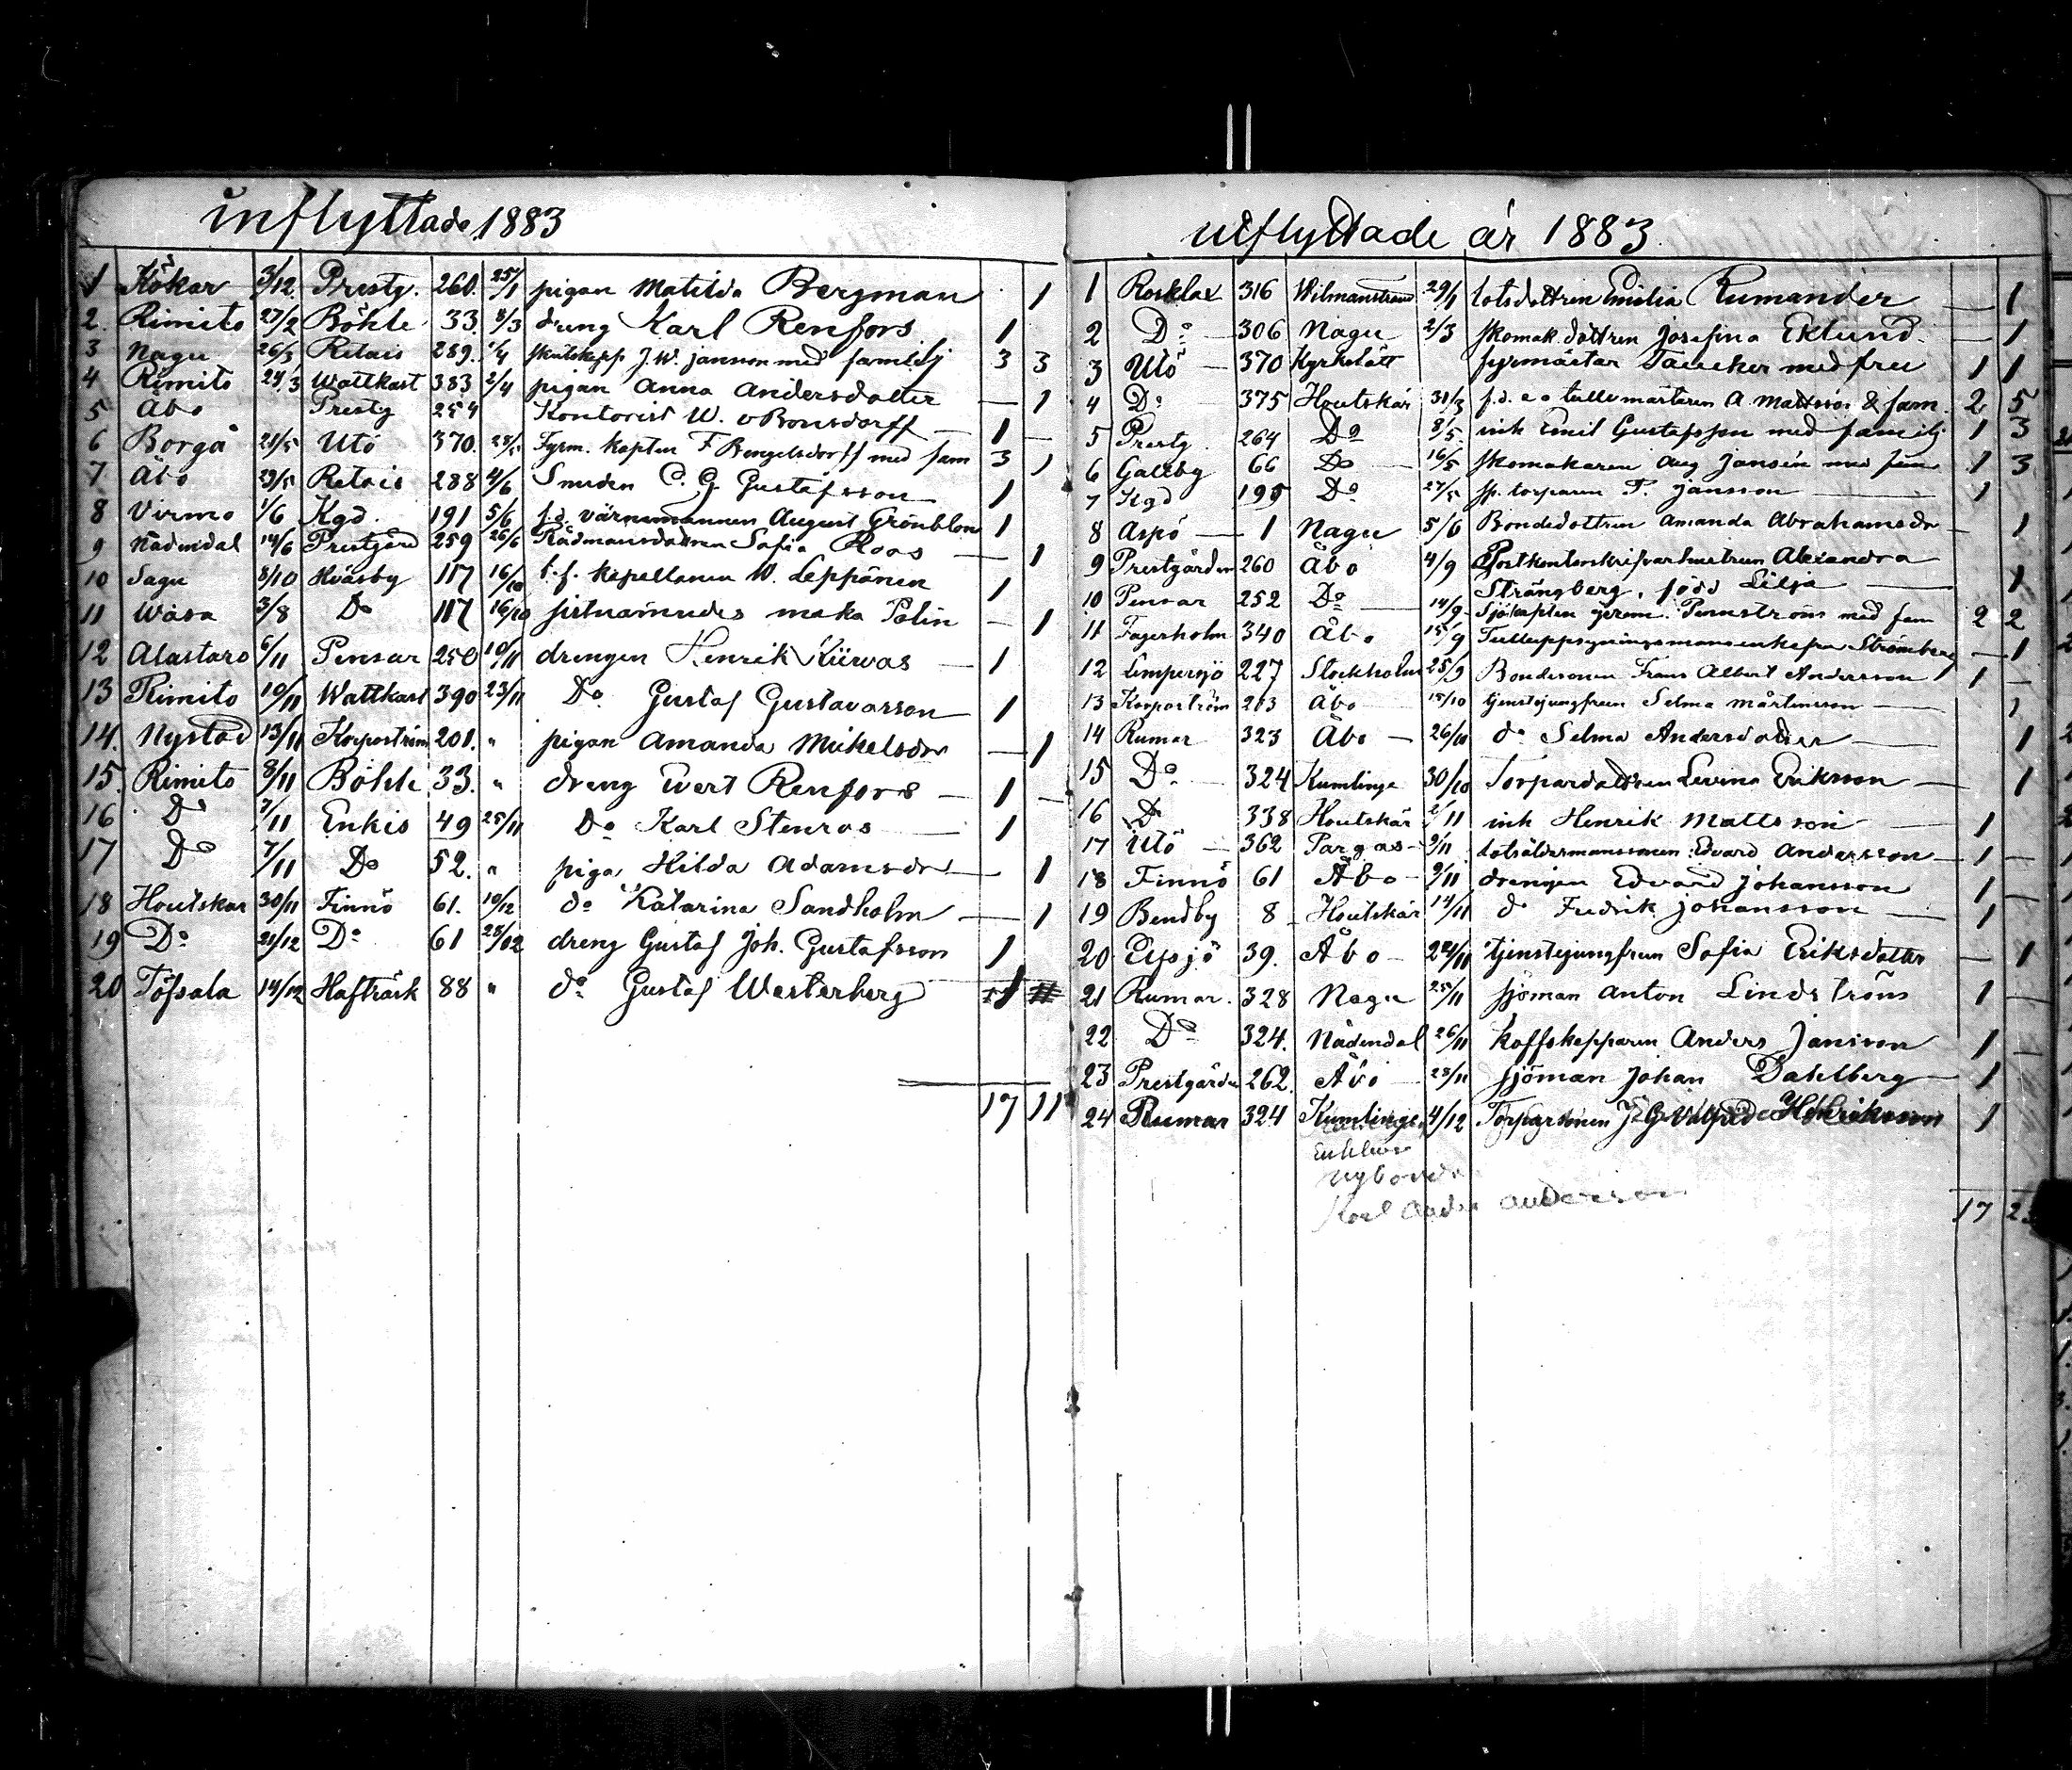 inflyttade 1883
1 Kökar 3/12 Prestg. 260. 25/1 pigan Matilda Bergman 1
2. Rimito 27/2 Böhle 33. 8/3 dreng Karl Renfors 1
3 Nagu 26/3 Retais 289. 1/4 J.W. Jansson med familj 3 3
4 Rimito 24/3 Wattkast 383 2/4 pigan Anna Andersdotter — 1
5 Åbo Prestg 254 Kontorist W. v Bonsdorff — 1 —
6 Borgå 21/5 Utö 370. 28/5 Fyrm. kapten F Bengelsdorff med fam 3 1
7 Åbo 23/5 Retais 288 4/6 Smeden C. G Gustafsson — 1
8 Virmo 1/6 Kgd. 191 5/6 f.d. August Grönblom 1
9 Nådendal 14/6 Prestgård 259 26/6 Rådmansdottren Sofia Roos — 1
10 Sagu 8/10 Hväsby 117 16/10 t.f. kapellanen W. Leppänen 1
11 Wasa 3/8 Do 117 16/10 maka Polin — 1
12 Alastaro 6/11 Pensar 250 10/11 drengen Henrik Kiirvas — 1
13 Rimito 10/11 Wattkast 390 23/11 Do Gustaf Gustavsson — 1
14. Nystad 13/11 Korpoström 201. " pigan Amanda Mikelsdr — 1
15. Rimito 8/11 Böhle 33. " dreng Evert Renfors — 1 —
16 Do 7/11 Enkis 49 25/11 Do Karl Stenros — 1
17 Do 7/11 Do 52. " piga Hilda Adamsdr — 1
18 Houtskar 30/11 Finnö 61. 10/12 do Katarina Sandholm — 1
19 Do 21/12 Do 61 28/12 dreng Gustaf Joh. Gustafsson 1
20 Töfsala 14/12 Hafträsk 88 " do Gustaf Westerberg 1
17 11
utflyttade år 1883
1 Rosklax 316 Wilmanstrand 29/1 lotsdottren Emilia Rumander — 1
2 Do — 306 Nagu 2/3 skomak.dottren Josefina Eklund. — 1
3 Utö — 370 Kyrkslätt fyrmästar Taucher med fru 1 1
4 Do 375 Houtskär 31/3 f.d. e.o tullvmästaren A. Mattsson & fam. 2 5
5 Prestg. 264 Do 8/5 inh Emil Gustafsson med familj 1 3
6 Galtby 66 Do — 16/5 skomakaren Aug Jansén med fam 1 3
7 Kgd 195 Do 27/5 torparen F. Jansson — 1
8 Aspö — 1 Nagu 5/6 Bondedottren Amanda Abrahamsdr — 1
9 Prestgården 260 Åbo 4/9 Postkontorskrifvarhustrun Alexandra
Strängberg, född Lilja — 1
10 Pensar 252 Do — 14/9 Sjökapten Jerem. Pennström med fam 2 2
11 Fagerholm 340 Åbo 15/9 Tulluppsyningsmansenkefru Strömberg — 1
12 Lempersjö 227 Stockholm 25/9 Bondesonen Frans Albert Andersson 1 —
13 Korpoström 203 Åbo 15/10 tjenstejungfrun Selma Mårtensson — 1
14 Rumar 323 Åbo — 26/10 do Selma Andersdotter — 1
15 Do — 324 Kumlinge 30/10 Torpardottren Levina Eriksson — 1
16 Do 338 Houtskär 2/11 inh Henrik Mattsson — 1
17 Utö — 362 Pargas — 9/11 lotsåldermanssonen Edvard Andersson — 1 —
18 Finnö 61 Åbo — 9/11 drengen Edvard Johansson 1
19 Bendby 8 — Houtskär 14/11 do Fredrik Johansson — 1
20 Elfsjö 39. Åbo — 22/11 tjenstejungfrun Sofia Eriksdotter — 1
21 Rumar. 328 Nagu 25/11 sjöman Anton Lindström 1 —
22 Do 324. Nådendal 26/11 koffskepparen Anders Jansson 1 —
23 Prestgården 262. Åbo — 28/11 sjöman Johan Dahlberg — 1
24 Rumar 324 Kumlinge 4/12 Torparsonen J. G. Valfrid Henriksson 1
Karl Anders Anderson
17